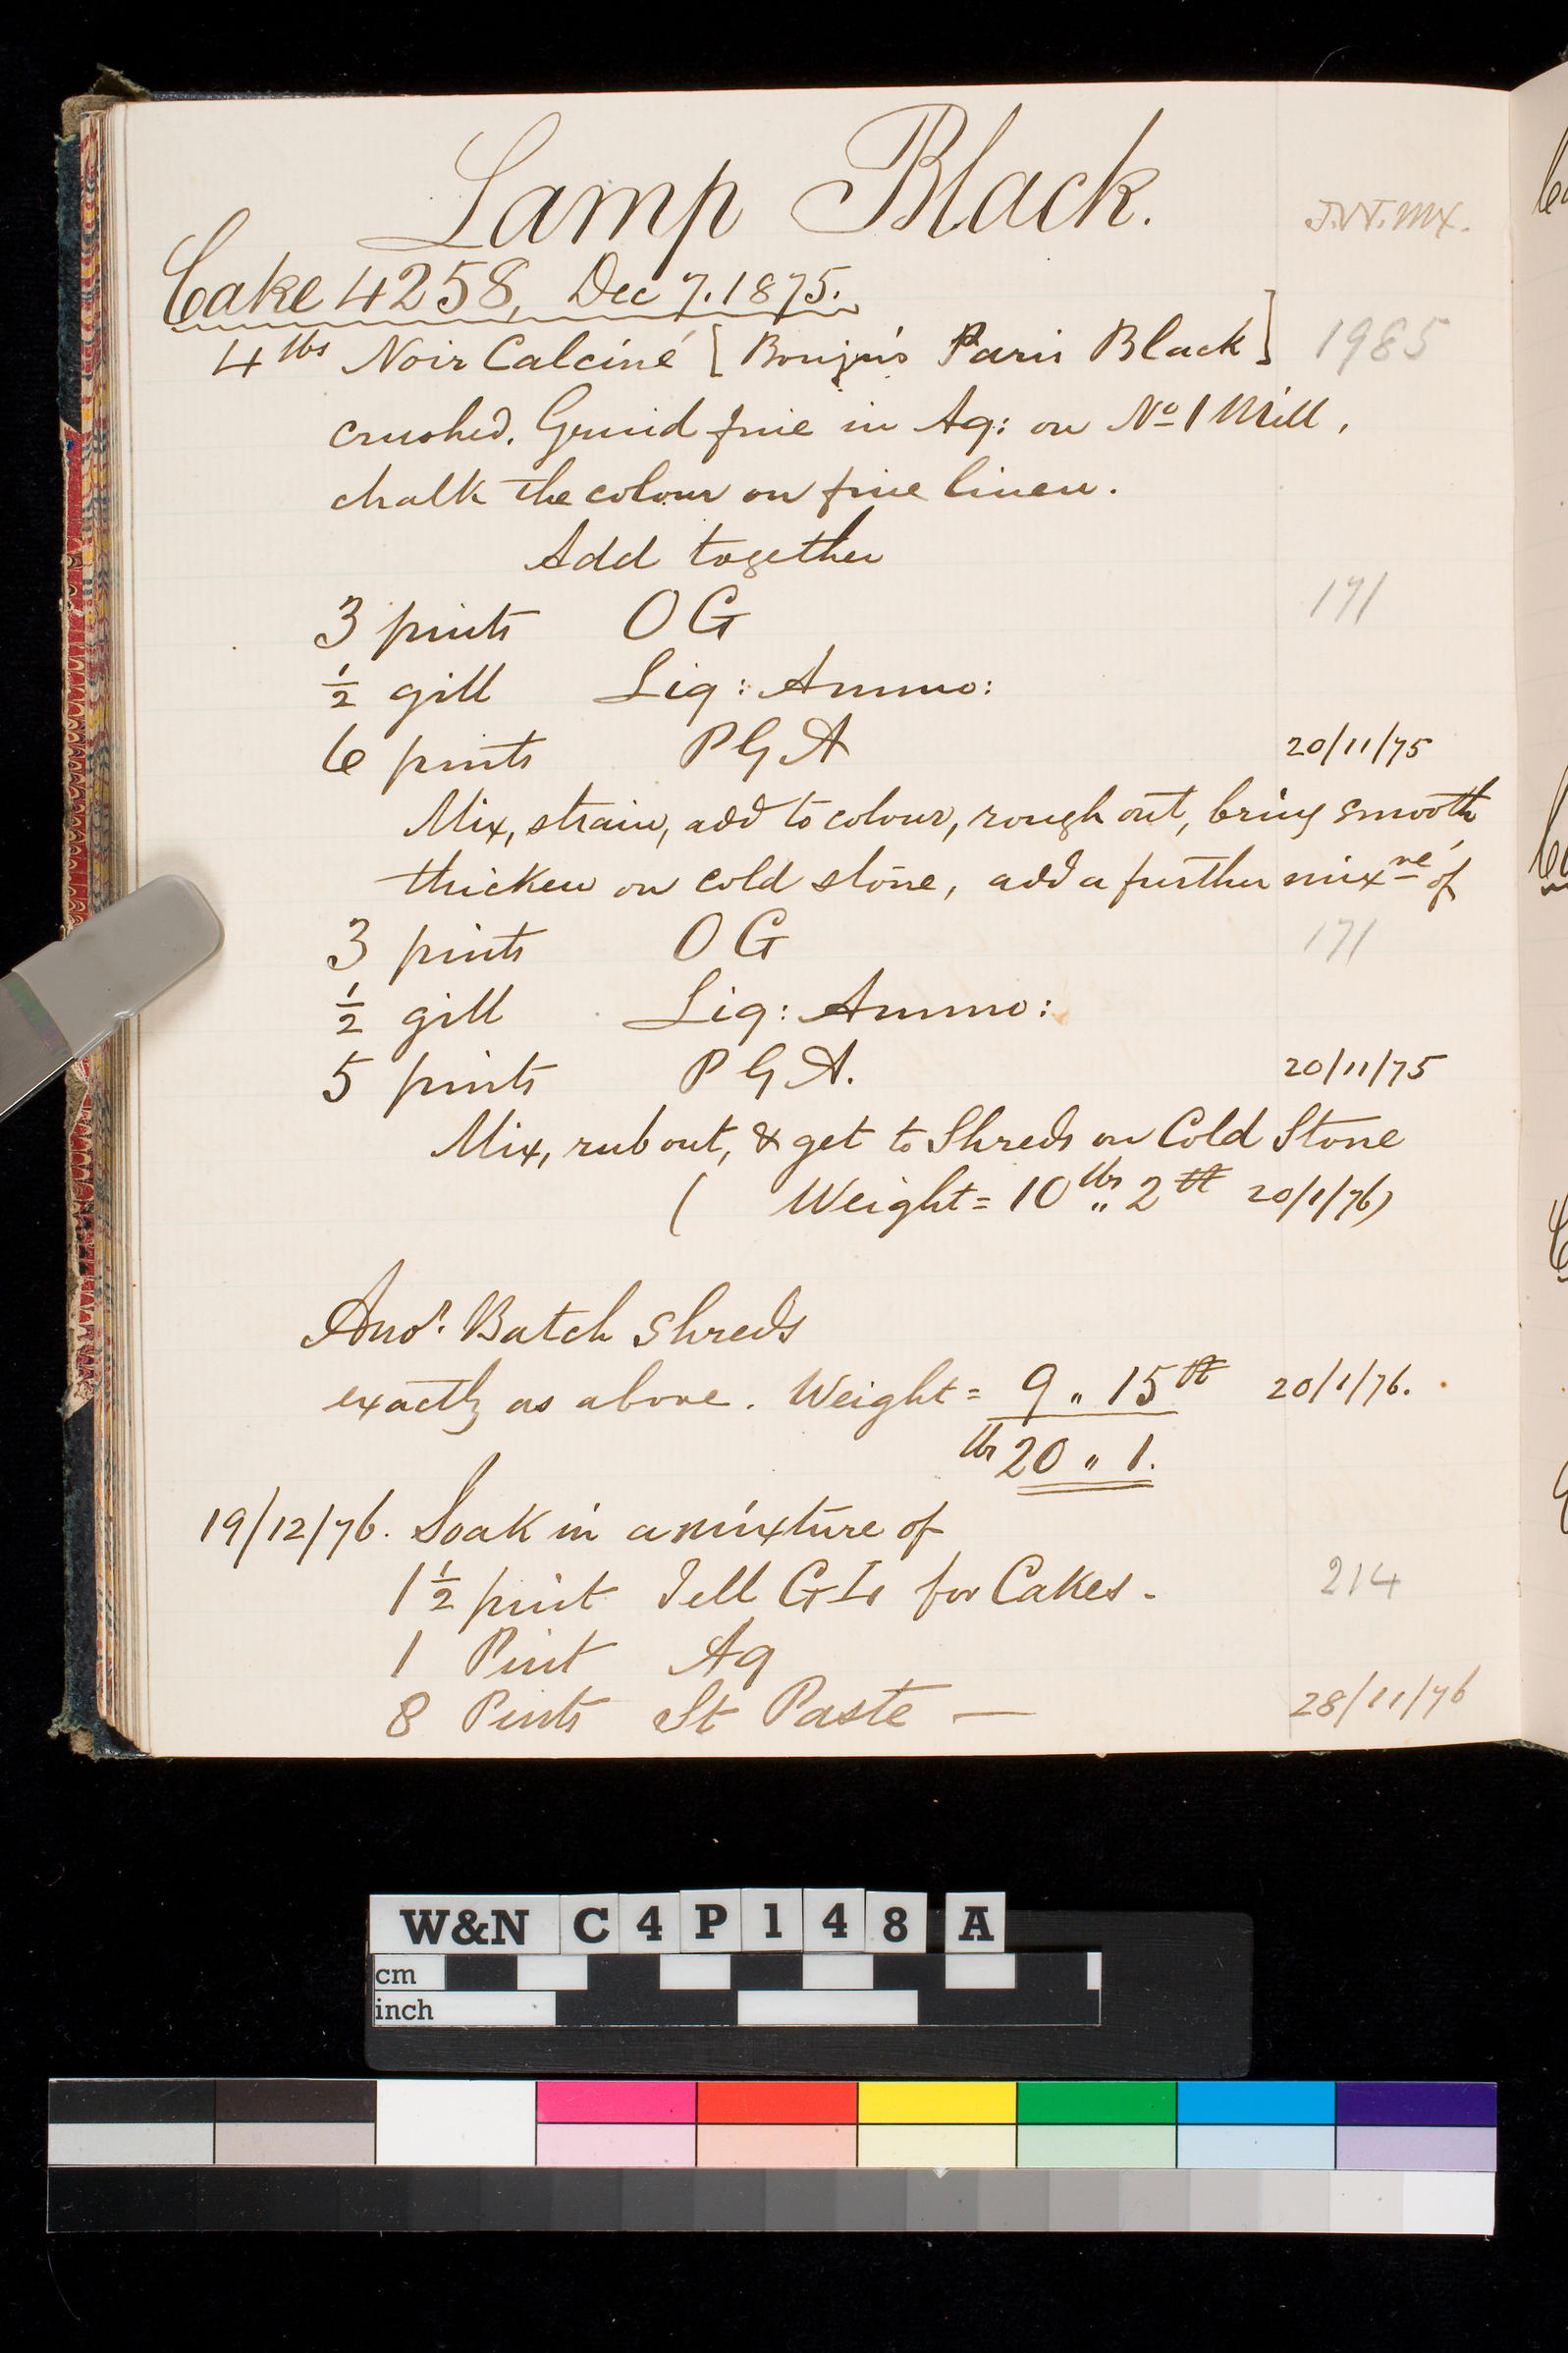 Lamp Black.
Cake 4258, Dec 7. 1875.
4 lbs Noir Calciné [ Paris Black] 1985
crushed. Grind fine in Aq: on No 1 Mill,
chalk the colour on fine linen.
Add together
3 pints OG 171
½ gill Liq: Ammo:
6 pints PGA 20/11/75
Mix, strain, add to colour, rough out, bring smooth
thicken on cold stone, add a further mixre of
3 pints OG 171
½ gill Liq: Ammo:
5 pints PGA. 20/11/75
Mix, rub out, & get to Shreds on Cold Stone
( Weight = 10 lbs " 2 20/1/76)
Anor. Batch Shreds
exactly as above. Weight = 9 " 15 20/1/76.
lbs 20 " 1.
19/12/76. Soak in a mixture of
1½ pint Jell for Cakes. 214
1 Pint Aq
8 Pints St Paste — 28/11/76
W&N C4P148 A
cm
inch